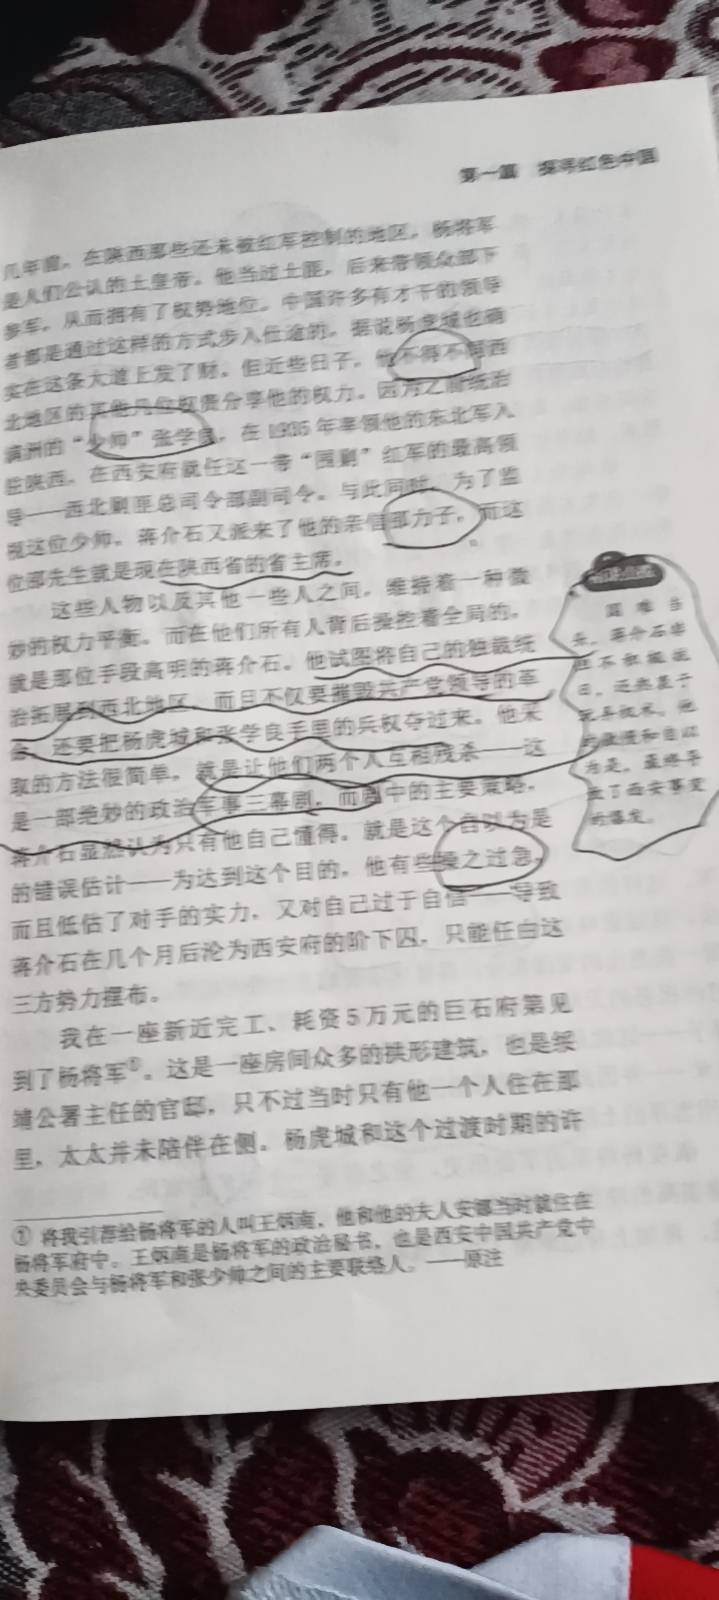 第一篇 探寻红色中国
几年前，在陕西那些还未被红军控制的地区，杨将军
是人们公认的土皇帝。他当过土匪，后来带领众部下
参军，从而拥有了权势地位。中国许多有才干的领导
者都是通过这样的方式步入仕途的。据说杨虎城也确
实在这条大道上发了财。但近些日子，他不得不同西
北地区的其他几位权贵分享他的权力。因为之前统治
满洲的“少帅”张学良，在1935年率领他的东北军入
驻陕西，在西安府就任这一带“围剿”红军的最高领
导——西北剿匪总司令部副司令。与此同时，为了监
视这位少帅，蒋介石又派来了他的亲信邵力子，而这
位邵先生就是现在陕西省的省主席。
这些人物以及其他一些人之间，维持着一种微
妙的权力平衡。而在他们所有人背后操控着全局的，
就是那位手段高明的蒋介石。他试图将自己的独裁统
治拓展到西北地区，而且不仅要摧毁共产党领导的革
命，还要把杨虎城和张学良手里的兵权夺过来。他采
取的方法很简单，就是让他们两个人互相残杀——这
是一部绝妙的政治军事三幕剧，而剧中的主要策略，
蒋介石显然认为只有他自己懂得。就是这个自以为是
的错误估计——为达到这个目的，他有些操之过急，
而且低估了对手的实力，又对自己过于自信——导致
蒋介石在几个月后沦为西安府的阶下囚，只能任由这
三方势力摆布。
我在一座新近完工、耗资5万元的巨石府第见
到了杨将军①。这是一座房间众多的拱形建筑，也是绥
靖公署主任的官邸，只不过当时只有他一个人住在那
里，太太并未陪伴在侧。杨虎城和这个过渡时期的许
国难当
头，蒋介石非
但不积极抗
日，还热衷于
玩弄权术，他
的傲慢和自以
为是，最终导
致了西安事变
的爆发。
① 将我引荐给杨将军的人叫王炳南，他和他的夫人安娜当时就住在
杨将军府中。王炳南是杨将军的政治秘书，也是西安中国共产党中
央委员会与杨将军和张少帅之间的主要联络人。——原注